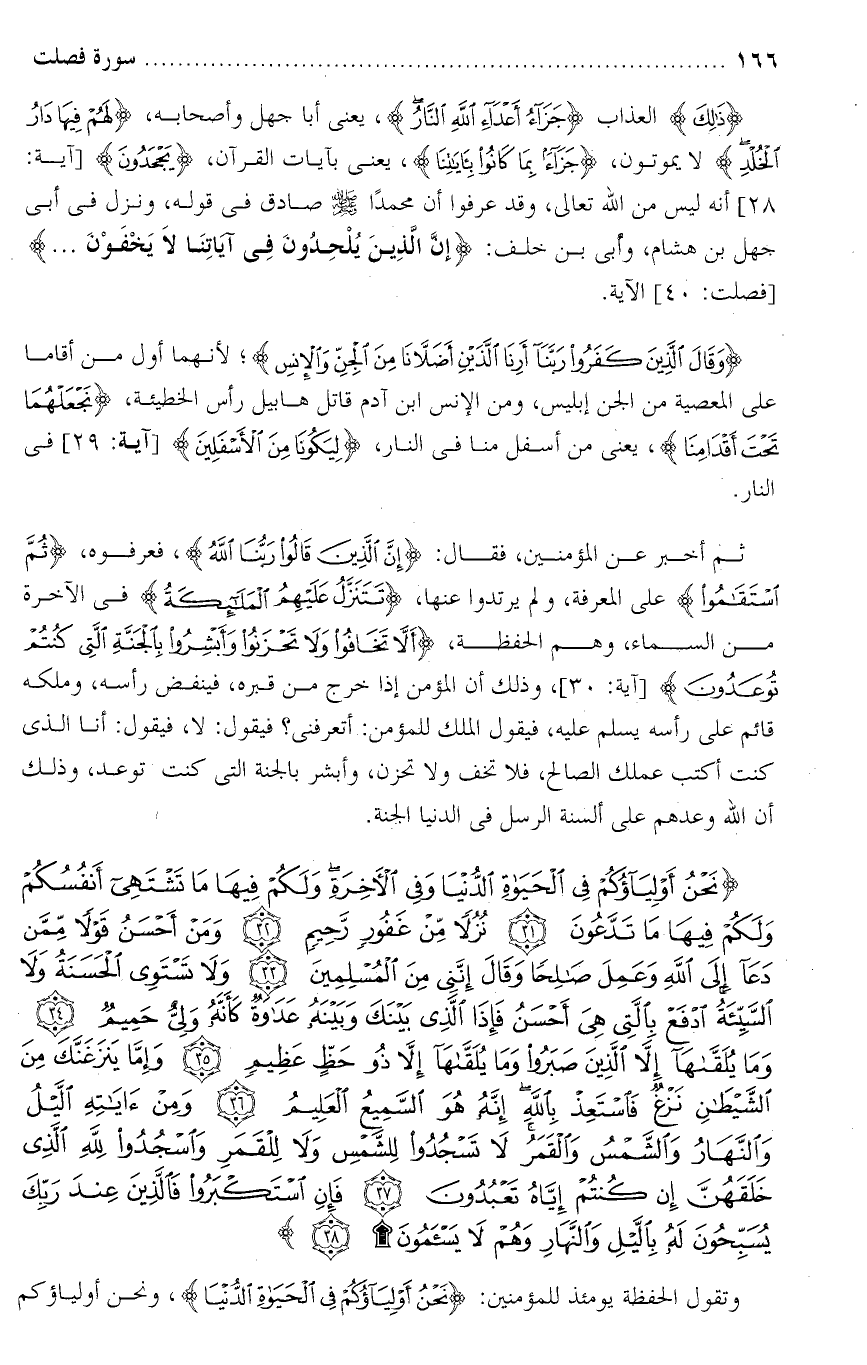 ١٦٦ ........................................................................ سورة فصلت
﴿ذَٰلِكَ﴾ العذاب ﴿جَزَآءُ أَعْدَآءِ ٱللَّهِ ٱلنَّارُ﴾، يعنى أبا جهل وأصحابه، ﴿لَهُمْ فِيهَا دَارُ
ٱلْخُلْدِ﴾ لا يموتون، ﴿جَزَآءًۢ بِمَا كَانُوا۟ بِـَٔايَـٰتِنَا﴾، يعنى بآيات القرآن، ﴿يَجْحَدُونَ﴾ [آية:
٢٨] أنه ليس من الله تعالى، وقد عرفوا أن محمدًا ﷺ صادق فى قوله، ونزل فى أبى
جهل بن هشام، وأبى بن خلف: ﴿إِنَّ الَّذِينَ يُلْحِدُونَ فِى آيَاتِنَا لاَ يَخْفَوْنَ ...﴾
[فصلت: ٤٠] الآية.
﴿وَقَالَ ٱلَّذِينَ كَفَرُوا۟ رَبَّنَآ أَرِنَا ٱلَّذَيْنِ أَضَلَّانَا مِنَ ٱلْجِنِّ وَٱلْإِنسِ﴾؛ لأنهما أول من أقاما
على المعصية من الجن إبليس، ومن الإنس ابن آدم قاتل هابيل رأس الخطيئة، ﴿نَجْعَلْهُمَا
تَحْتَ أَقْدَامِنَا﴾، يعنى من أسفل منا فى النار، ﴿لِيَكُونَا مِنَ ٱلْأَسْفَلِينَ﴾ [آية: ٢٩] فى
النار.
ثم أخبر عن المؤمنين، فقال: ﴿إِنَّ ٱلَّذِينَ قَالُوا۟ رَبُّنَا ٱللَّهُ﴾، فعرفوه، ﴿ثُمَّ
ٱسْتَقَـٰمُوا۟﴾ على المعرفة، ولم يرتدوا عنها، ﴿تَتَنَزَّلُ عَلَيْهِمُ ٱلْمَلَـٰٓئِكَةُ﴾ فى الآخرة
من السماء، وهم الحفظة، ﴿أَلَّا تَخَافُوا۟ وَلَا تَحْزَنُوا۟ وَأَبْشِرُوا۟ بِٱلْجَنَّةِ ٱلَّتِى كُنتُمْ
تُوعَدُونَ﴾ [آية: ٣٠]، وذلك أن المؤمن إذا خرج من قبره، فينفض رأسه، وملكه
قائم على رأسه يسلم عليه، فيقول الملك للمؤمن: أتعرفنى؟ فيقول: لا، فيقول: أنا الذى
كنت أكتب عملك الصالح، فلا تخف ولا تحزن، وأبشر بالجنة التى كنت توعد، وذلك
أن الله وعدهم على ألسنة الرسل فى الدنيا الجنة.
﴿نَحْنُ أَوْلِيَآؤُكُمْ فِى ٱلْحَيَوٰةِ ٱلدُّنْيَا وَفِى ٱلْـَٔاخِرَةِ ۖ وَلَكُمْ فِيهَا مَا تَشْتَهِىٓ أَنفُسُكُمْ
وَلَكُمْ فِيهَا مَا تَدَّعُونَ ٣١ نُزُلًا مِّنْ غَفُورٍ رَّحِيمٍ ٣٢ وَمَنْ أَحْسَنُ قَوْلًا مِّمَّن
دَعَآ إِلَى ٱللَّهِ وَعَمِلَ صَـٰلِحًا وَقَالَ إِنَّنِى مِنَ ٱلْمُسْلِمِينَ ٣٣ وَلَا تَسْتَوِى ٱلْحَسَنَةُ وَلَا
ٱلسَّيِّئَةُ ۚ ٱدْفَعْ بِٱلَّتِى هِىَ أَحْسَنُ فَإِذَا ٱلَّذِى بَيْنَكَ وَبَيْنَهُۥ عَدَٰوَةٌ كَأَنَّهُۥ وَلِىٌّ حَمِيمٌ ٣٤
وَمَا يُلَقَّىٰهَآ إِلَّا ٱلَّذِينَ صَبَرُوا۟ وَمَا يُلَقَّىٰهَآ إِلَّا ذُو حَظٍّ عَظِيمٍ ٣٥ وَإِمَّا يَنزَغَنَّكَ مِنَ
ٱلشَّيْطَـٰنِ نَزْغٌ فَٱسْتَعِذْ بِٱللَّهِ ۖ إِنَّهُۥ هُوَ ٱلسَّمِيعُ ٱلْعَلِيمُ ٣٦ وَمِنْ ءَايَـٰتِهِ ٱلَّيْلُ
وَٱلنَّهَارُ وَٱلشَّمْسُ وَٱلْقَمَرُ ۚ لَا تَسْجُدُوا۟ لِلشَّمْسِ وَلَا لِلْقَمَرِ وَٱسْجُدُوا۟ لِلَّهِ ٱلَّذِى
خَلَقَهُنَّ إِن كُنتُمْ إِيَّاهُ تَعْبُدُونَ ٣٧ فَإِنِ ٱسْتَكْبَرُوا۟ فَٱلَّذِينَ عِندَ رَبِّكَ
يُسَبِّحُونَ لَهُۥ بِٱلَّيْلِ وَٱلنَّهَارِ وَهُمْ لَا يَسْـَٔمُونَ ۩ ٣٨﴾
وتقول الحفظة يومئذ للمؤمنين: ﴿نَحْنُ أَوْلِيَآؤُكُمْ فِى ٱلْحَيَوٰةِ ٱلدُّنْيَا﴾، ونحن أولياؤكم